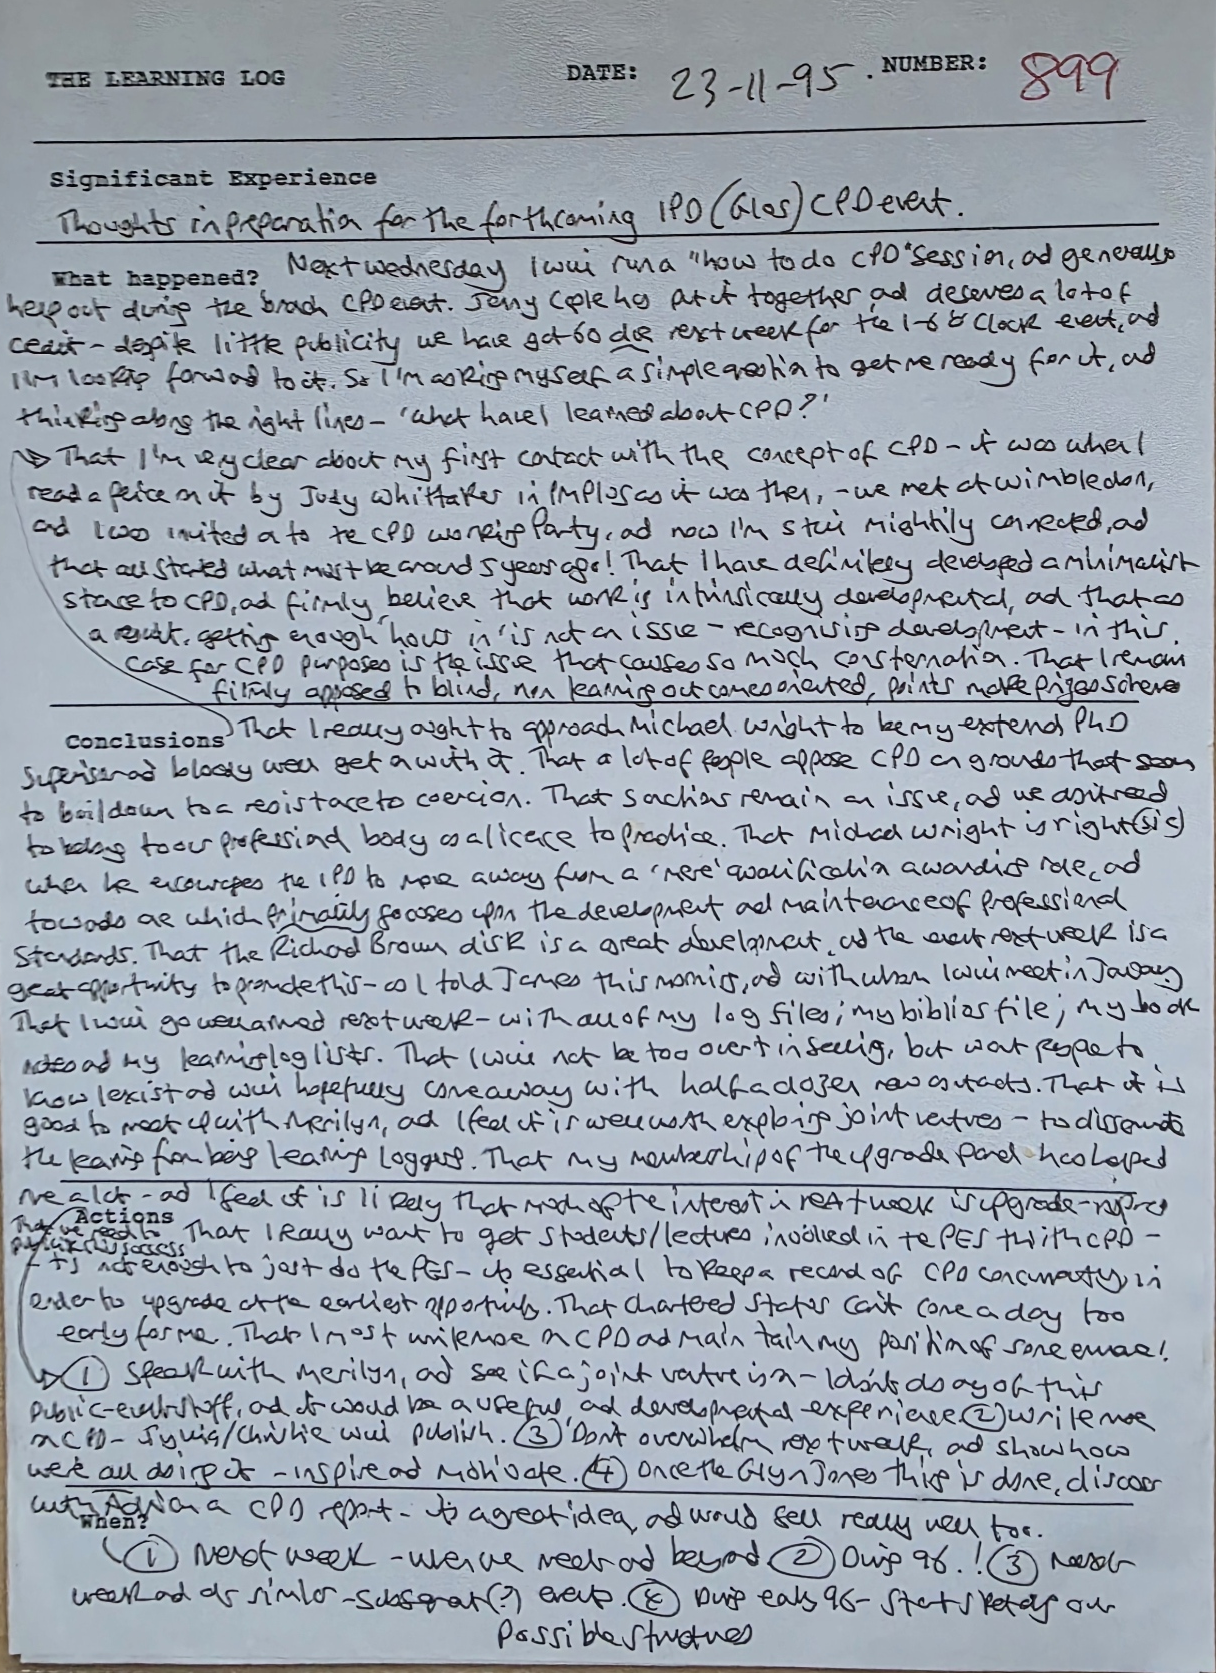 THE LEARNING LOG DATE: 23-11-95. NUMBER: 899
Significant Experience
Thoughts in preparation for the forthcoming IPD (Glos) CPD event.
What happened? Next wednesday I will run a "how to do CPD" session, ad generally
help out during the branch CPD event. Jenny Cople has put it together ad deserves a lot of
credit - despite little publicity we have got 60 due next week for the 1-6 o'clock event, ad
I'm looking forward to it. So I'm asking myself a simple question to get me ready for it, ad
thinking along the right lines - 'what have I learned about CPD?'
→ That I'm very clear about my first contact with the concept of CPD - it was when I
read a peice on it by Judy Whittaker in PMPlus as it was then, - we met at wimbledon,
ad I was invited on to the CPD working Party, ad now I'm still mightily connected, ad
that all started what must be around 5 years ago! That I have definitely developed a minimalist
stance to CPD, ad firmly believe that work is intrinsically developmental, ad that as
a result, getting enough 'hours in' is not an issue - recognising development - in this
case for CPD purposes is the issue that causes so much consternation. That I remain
firmly opposed to blind, non learning outcomes oriented, points make prizes schemes
Conclusions That I really ought to approach Michael Wright to be my external PhD
Supervisor ad bloody well get on with it. That a lot of people oppose CPD on grounds that seem
to boil down to a resistance to coercion. That sanctions remain an issue, ad we don't need
to belong to our professional body as a licence to practice. That Michael Wright is right (sic)
when he encourages the IPD to move away from a 'mere' qualification awarding role, ad
towards one which primarily focuses upon the development ad maintenance of professional
Standards. That the Richard Brown disk is a great development, ad the event next week is a
great opportunity to promote this - as I told James this morning, ad with whom I will meet in January
That I will go well armed next week - with all of my log files; my biblios file; my book
notes ad my learning log lists. That I will not be too overt in selling, but want people to
know I exist ad will hopefully come away with half a dozen new contacts. That it is
good to meet up with Merilyn, ad I feel it is well worth exploring joint ventures - to disseminate
the learning from being learning loggers. That my membership of the upgrade panel has helped
me a lot - ad I feel it is likely that much of the interest in next week is upgrade-inspired
Actions That I really want to get students/lectures involved in the PES thith CPD -
That we need to publicise this success
- it's not enough to just do the PES - its essential to keep a record of CPD concurrently, in
order to upgrade at the earliest opportunity. That chartered status can't come a day too
early for me. That I must write more on CPD ad maintain my position of some eminence!
→ ① Speak with Merilyn, ad see if a joint venture is on - I don't do any of this
public-event stuff, ad it would be a useful, ad developmental experience ② Write more
on CPD - Sylvia/Christie will publish. ③ Don't overwhelm next week, ad show how
we're all doing it - inspire ad motivate. ④ Once the Glyn Jones thing is done, discuss
with Adrian a CPD report - its a great idea, ad would sell really well too.
When?
① Next week - when we meet ad beyond ② During 96.! ③ Next
week ad at similar - subsequent(?) events. ④ During early 96 - start sketching our
possible structures